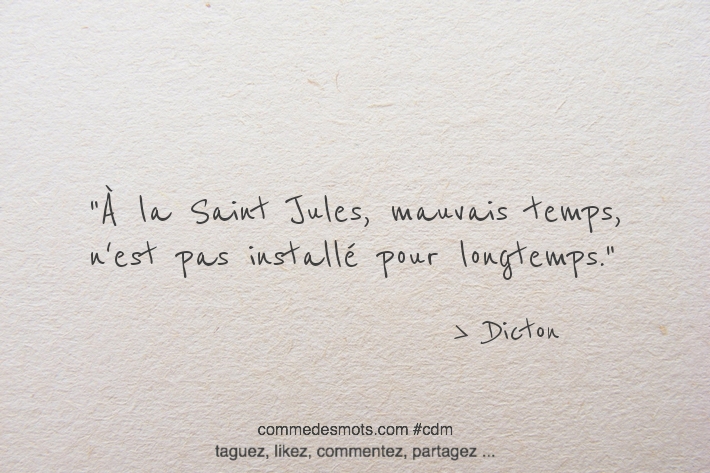 "À la Saint Jules, mauvais temps,
n'est pas installé pour longtemps."
> Dicton
commedesmots.com #cdm
taguez, likez, commentez, partagez ...